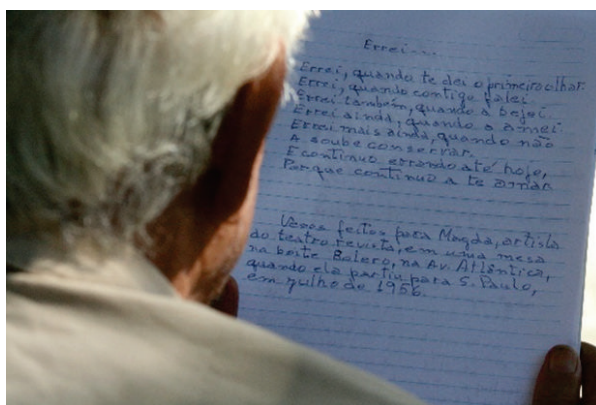 Errei...
Errei, quando te dei o primeiro olhar.
Errei, quando contigo falei
Errei também, quando a beijei.
Errei ainda, quando o amei
Errei mais ainda, quando não
A soube conservar.
E continuo errando até hoje,
Porque continuo a te amar.
Versos feitos para Magda, artista
do teatro revista, em uma mesa
na boite Bolero, na Av. Atlântica,
quando ela partiu para S. Paulo,
em julho de 1956.